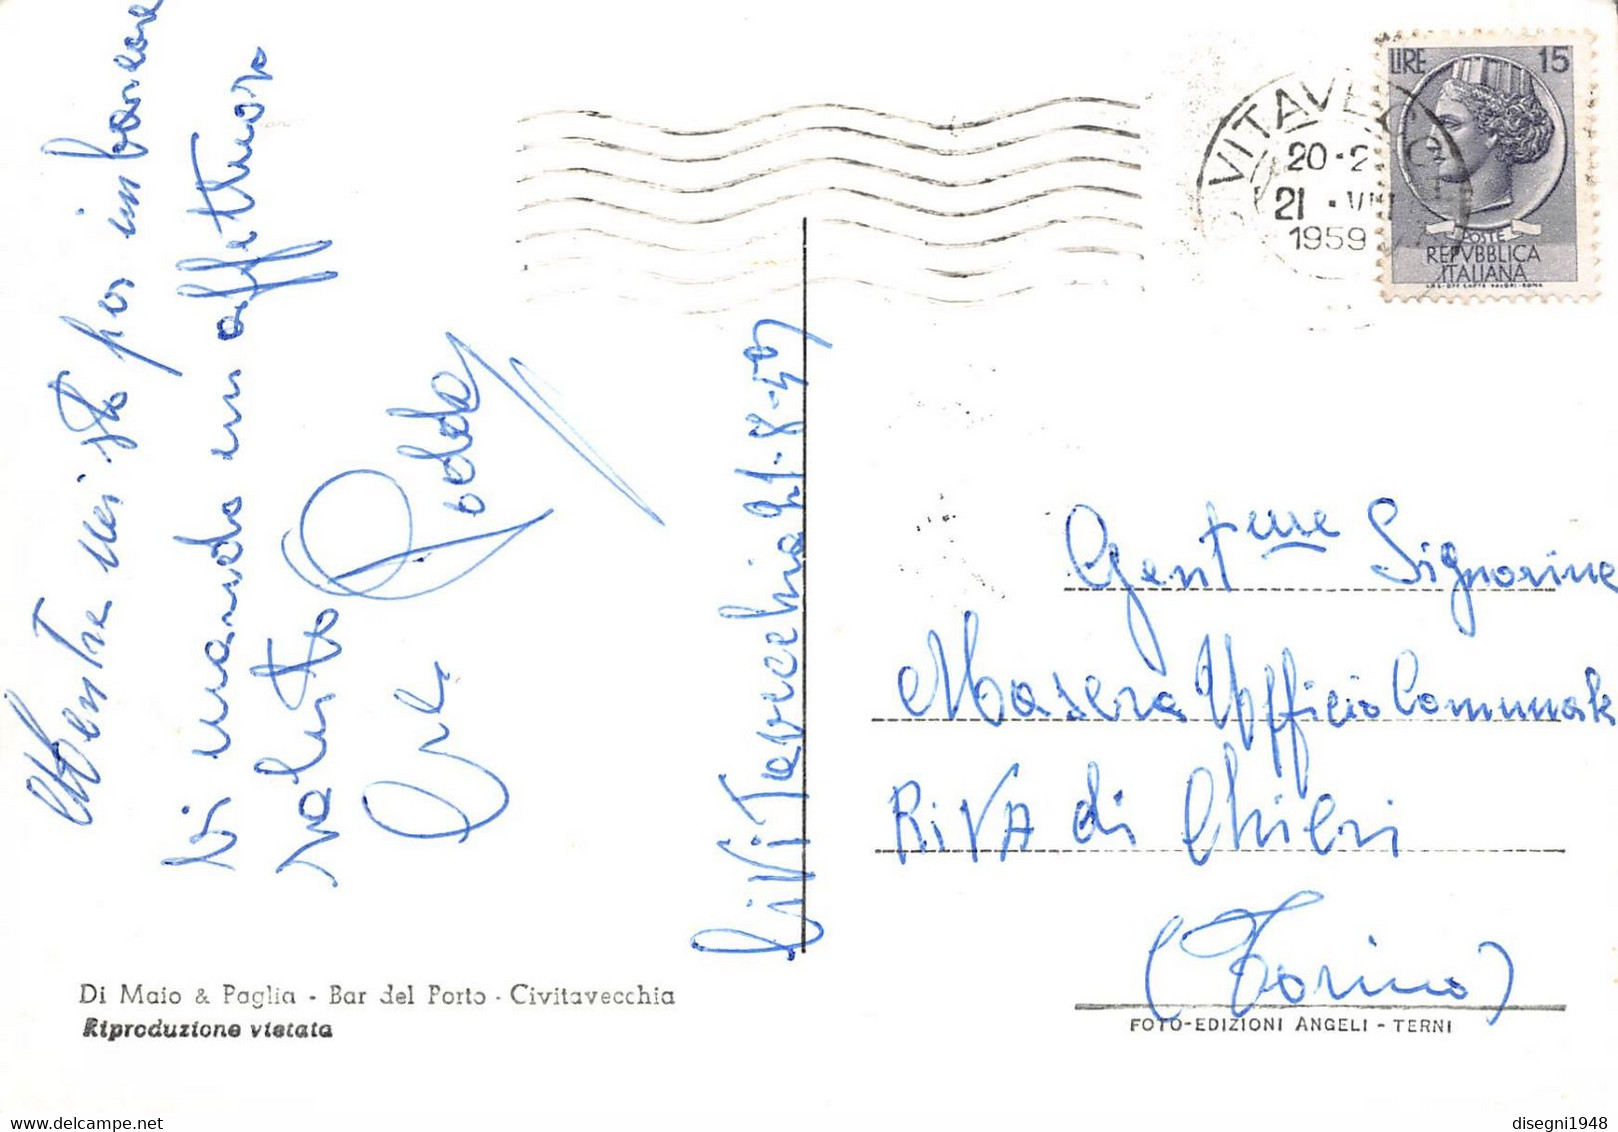 Mentre mi sto per imbarcare
vi mando un affettuoso
saluto
Civitavecchia 21-8-59
LIRE 15
POSTE
REPVBBLICA
ITALIANA
I.P.S. OFF. CARTE VALORI-ROMA
CIVITAVECCHIA
20-2
21 · VIII
1959
Gent.me Signorine
Masera Ufficio Comunale
RiVA di Chieri
(Torino)
Di Maio & Paglia - Bar del Porto - Civitavecchia
Riproduzione vietata
FOTO-EDIZIONI ANGELI - TERNI
disegni1948